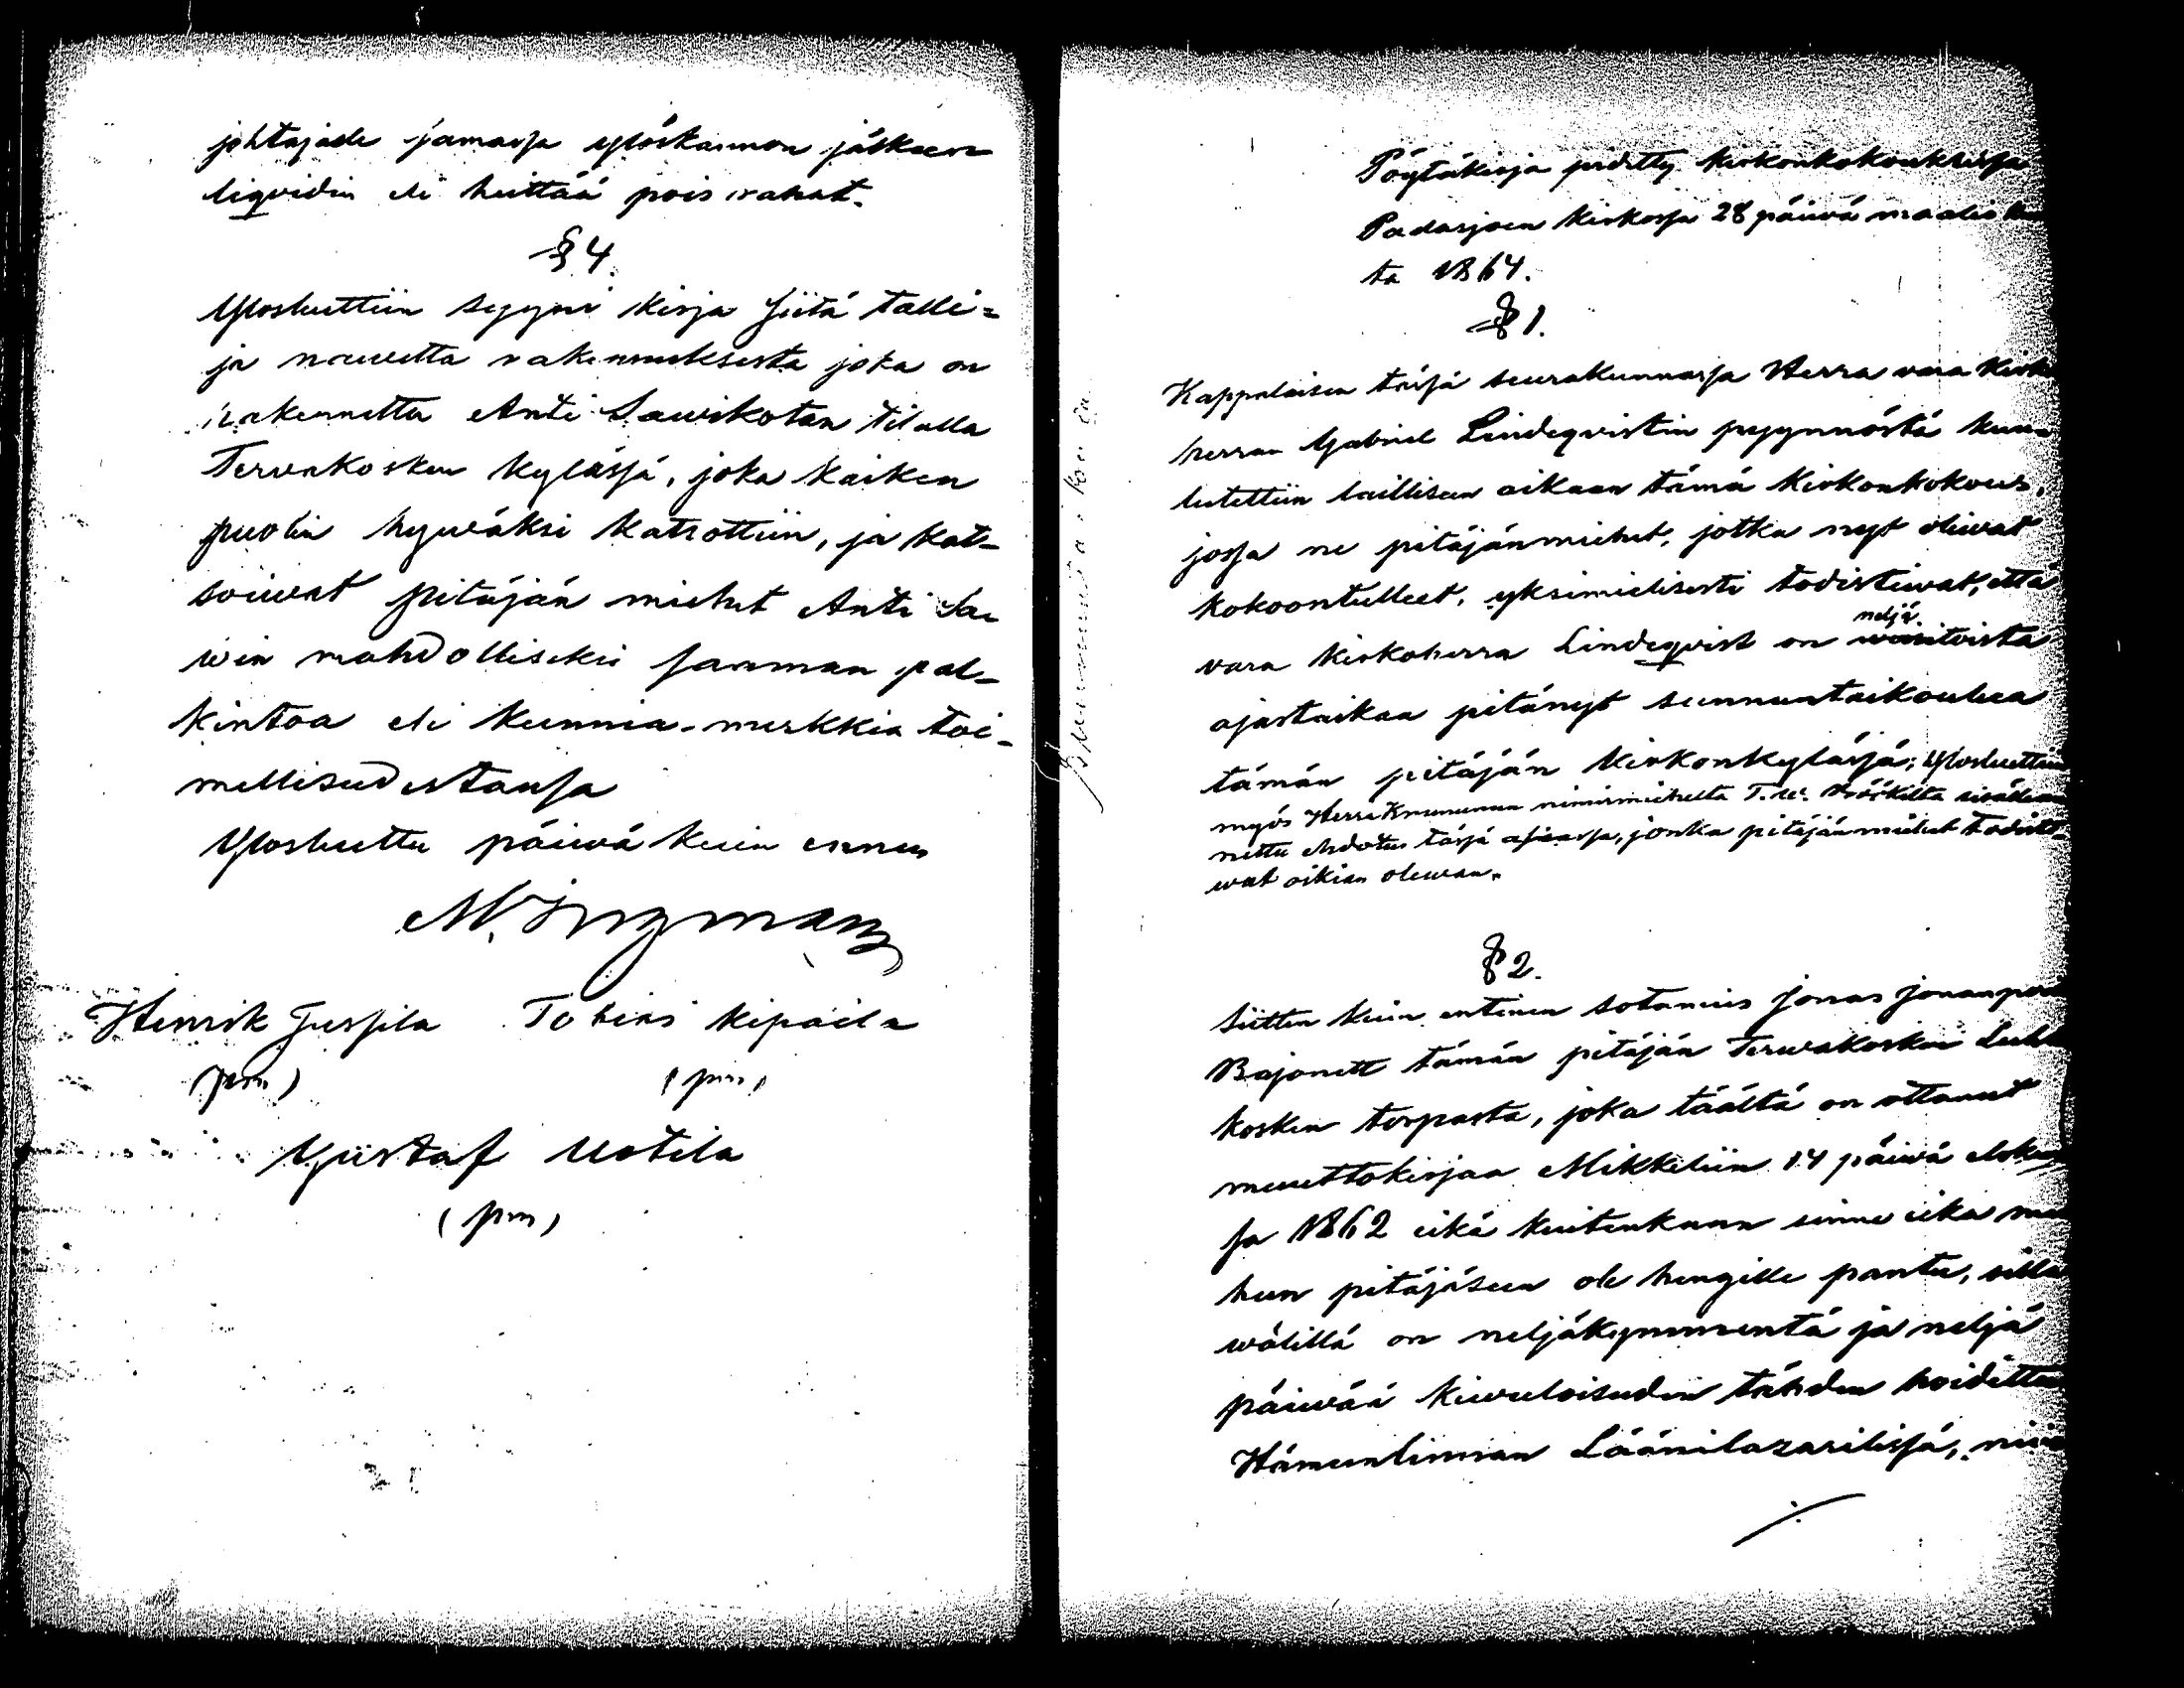 johtajade samassa ylöskannon jälkeen
liqvidin eli heittää pois rahat.
§ 4.
Ylosluettiin syyni kirja siitä talli=
ja nauvetta rakennuksesta joka on
rakennettu Anti Sauvikotan tilalla
Tervakosken kylässä, joka kaiken
puolin hyväksi katsottiin, ja kat-
soivat pitäjän miehet Anti Sa-
win mahdolliseksi samman pal-
kintoa eli kunnia-merkkiä toi-
mellisudestansa
Ylosluettu päiwä kuin ennen
M. Ingman
Henrik Jussila Tobias Kipaila
(pm) (pm)
Gustaf Uotila
(pm)
Pöytäkirja pidetty kirkonkokouksessa
Padasjoen kirkossa 28 päiwä maalis kuu
ta 1864.
§ 1.
Kappalaisen tässä seurakunnassa Herra vara kirko
herran Gabriel Lindeqvistin pyynnöstä kuu-
lutettiin lailliseen aikaan tämä kirkonkokous,
jossa ne pitäjänmiehet, jotka nyt oliwat
kokoontulleet, yksimielisesti todistiwat, että
neljä
vara kirkoherra Lindeqvist on wiisitoista
ajastaikaa pitänyt sunnuntaikoulua
tämän pitäjän kirkonkylässä; Ylosluettiin
myös Herra Kruunun nimismieheltä T. W. Höökiltä sisään
nettu ehdotus tässä asiassa, jonka pitäjänmiehet todisti-
wat oikian olewan.
§ 2.
Siitten kuin entinen sotamies Jonas Jonanpoi
Bajonett tämän pitäjän Terwakosken Luh
kosken torpasta, joka täältä on ottanut
muuttokirjaa Mikkeliin 14 päiwä Loku
sa 1862 eikä kuitenkaan sinne eika mu
hun pitäjäseen ole hengille pantu, sillä
wälillä on neljäkymmentä ja neljä
päiwää kiwuloisuden tähden hoidittu
Hämenlinnan Läänilazaretissä, nii
./.